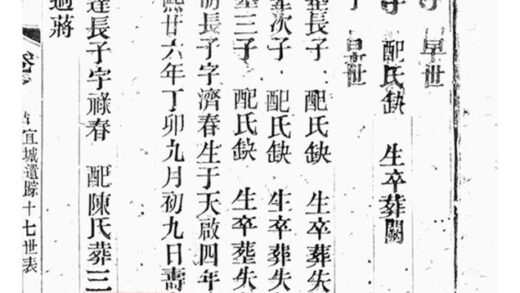 子 早世
子 配氏缺 生卒葬闕
早世
長子 配氏缺 生卒葬失
次子 配氏缺 生卒葬失
三子 配氏缺 生卒葬失
長子字濟春生于天啟四年
熙廿六年丁卯九月初九日壽
達長子字祿春 配陳氏葬三
過蔣
宜城遺踪十七世表